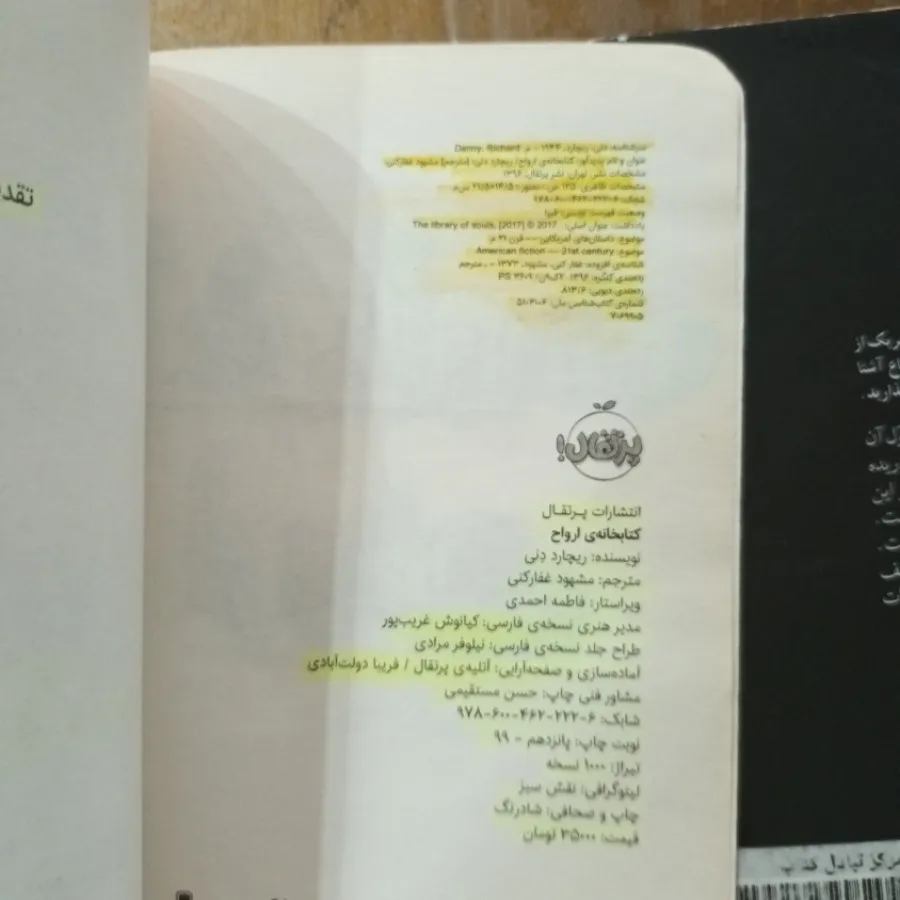 تقد
سرشناسه: دنی، ریچارد، ۱۹۴۴ - م. Denny, Richard
عنوان و نام پدیدآور: کتابخانه‌ی ارواح/ ریچارد دنی؛ [مترجم] مشهود غفارکنی.
مشخصات نشر: تهران: نشر پرتقال، ۱۳۹۶.
مشخصات ظاهری: ۱۲۵ ص.: مصور؛ ۱۴/۵×۲۱/۵ س‌م.
شابک: ۶-۲۲۲-۴۶۲-۶۰۰-۹۷۸
وضعیت فهرست نویسی: فیپا
یادداشت: عنوان اصلی: The library of souls, [2017] © 2017
موضوع: داستان‌های آمریکایی -- قرن ۲۱ م.
موضوع: American fiction -- 21st century
شناسه‌ی افزوده: غفار کنی، مشهود، ۱۳۷۳ - ، مترجم
رده‌بندی کنگره: PS ۳۶۰۹ ۱۳۹۶
رده‌بندی دیویی: ۸۱۳/۶
شماره‌ی کتاب‌شناسی ملی: ۵۱۰۴۱۰۶
۷۰۶۹۹۰۵
پرتقال!
انتشارات پرتقال
کتابخانه‌ی ارواح
نویسنده: ریچارد دِنی
مترجم: مشهود غفارکنی
ویراستار: فاطمه احمدی
مدیر هنری نسخه‌ی فارسی: کیانوش غریب‌پور
طراح جلد نسخه‌ی فارسی: نیلوفر مرادی
آماده‌سازی و صفحه‌آرایی: آتلیه‌ی پرتقال / فریبا دولت‌آبادی
مشاور فنی چاپ: حسن مستقیمی
شابک: ۶-۲۲۲-۴۶۲-۶۰۰-۹۷۸
نوبت چاپ: پانزدهم - ۹۹
تیراژ: ۱۰۰۰ نسخه
لیتوگرافی: نقش سبز
چاپ و صحافی: شادرنگ
قیمت: ۳۵۰۰۰ تومان
ریک از
اع آشنا
ذارید.
ول آن
ریده
این
ت.
ت.
ف
ت
مرکز تبادل کتاب